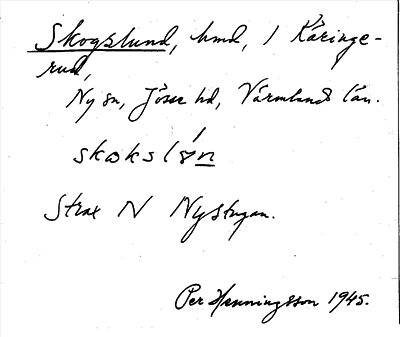 Skogslund, hmd, 1 Käringe-
rud,
Ny sn, Jösse hd, Värmlands län.
skoksløn
Strax N Nystugan.
Per Henningsson 1945.